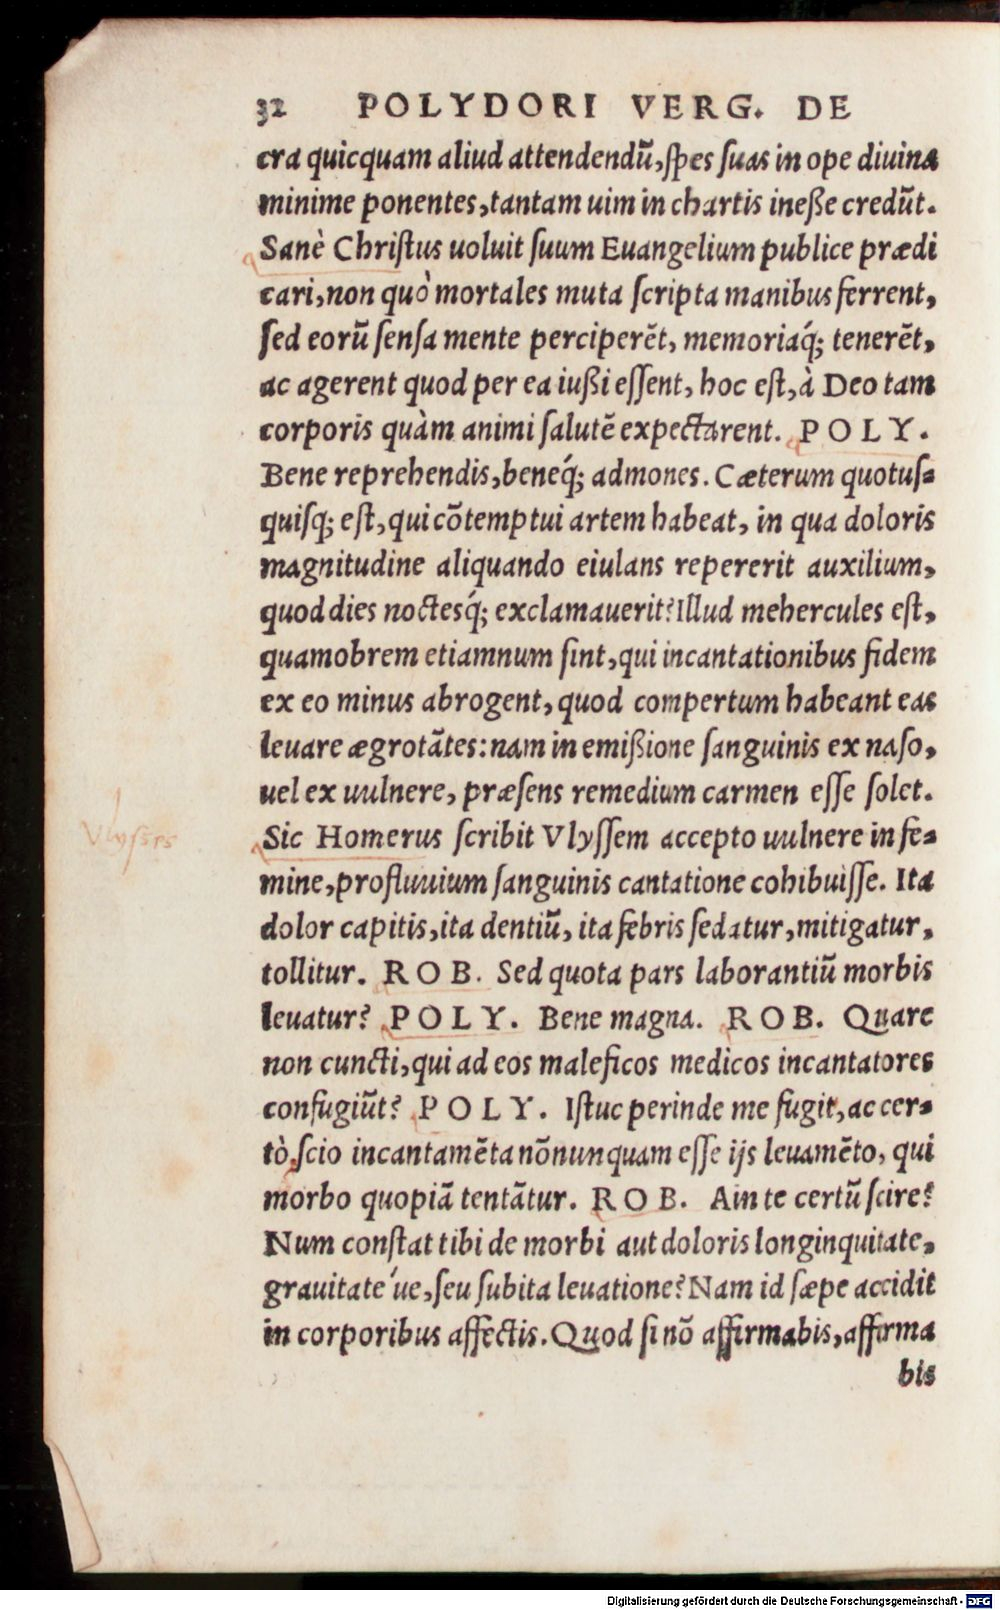 32 POLYDORI VERG. DE
cra quicquam aliud attendendū, ſpes ſuas in ope diuina
minime ponentes, tantam uim in chartis ineſſe credūt.
Sanè Chriſtus uoluit ſuum Euangelium publice prædi
cari, non quò mortales muta ſcripta manibus ferrent,
ſed eorū ſenſa mente perciperēt, memoriaq́; tenerēt,
ac agerent quod per ea iußi eſſent, hoc eſt, à Deo tam
corporis quàm animi ſalutē expectarent. POLY.
Bene reprehendis, beneq́; admones. Cæterum quotuſ=
quiſq; eſt, qui cōtemptui artem habeat, in qua doloris
magnitudine aliquando eiulans repererit auxilium,
quod dies noctesq́; exclamauerit? Illud mehercules eſt,
quamobrem etiamnum ſint, qui incantationibus fidem
ex eo minus abrogent, quod compertum habeant eas
leuare ægrotātes: nam in emißione ſanguinis ex naſo,
uel ex uulnere, præſens remedium carmen eſſe ſolet.
Vlyſses
Sic Homerus ſcribit Vlyſſem accepto uulnere in fe=
mine, profluuium ſanguinis cantatione cohibuiſſe. Ita
dolor capitis, ita dentiū, ita febris ſedatur, mitigatur,
tollitur. ROB. Sed quota pars laborantiū morbis
leuatur? POLY. Bene magna. ROB. Quare
non cuncti, qui ad eos maleficos medicos incantatores
confugiūt? POLY. Iſtuc perinde me fugit, ac cer=
tò ſcio incantamēta nōnunquam eſſe ijs leuamēto, qui
morbo quopiā tentātur. ROB. Ain te certū ſcire?
Num conſtat tibi de morbi aut doloris longinquitate,
grauitate úe, ſeu ſubita leuatione? Nam id ſæpe accidit
in corporibus affectis. Quod ſi nō affirmabis, affirma
bis
Digitalisierung gefördert durch die Deutsche Forschungsgemeinschaft - DFG